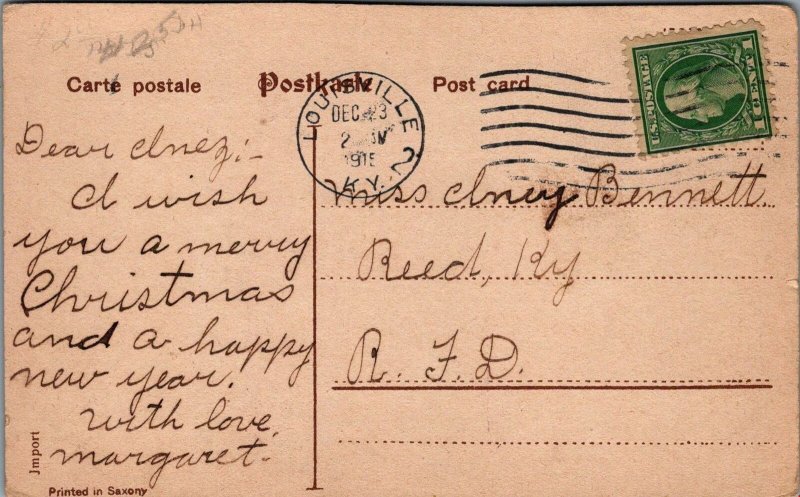 Carte postale Postkarte Post card
LOUISVILLE 2
DEC 23
KY.
U.S. POSTAGE
1 CENT 1
Dear Inez:-
I wish
you a merry
Christmas
and a happy
new year.
with love,
margaret.
Miss Inez Bennett.
Reed, Ky
R. F. D.
Import
Printed in Saxony